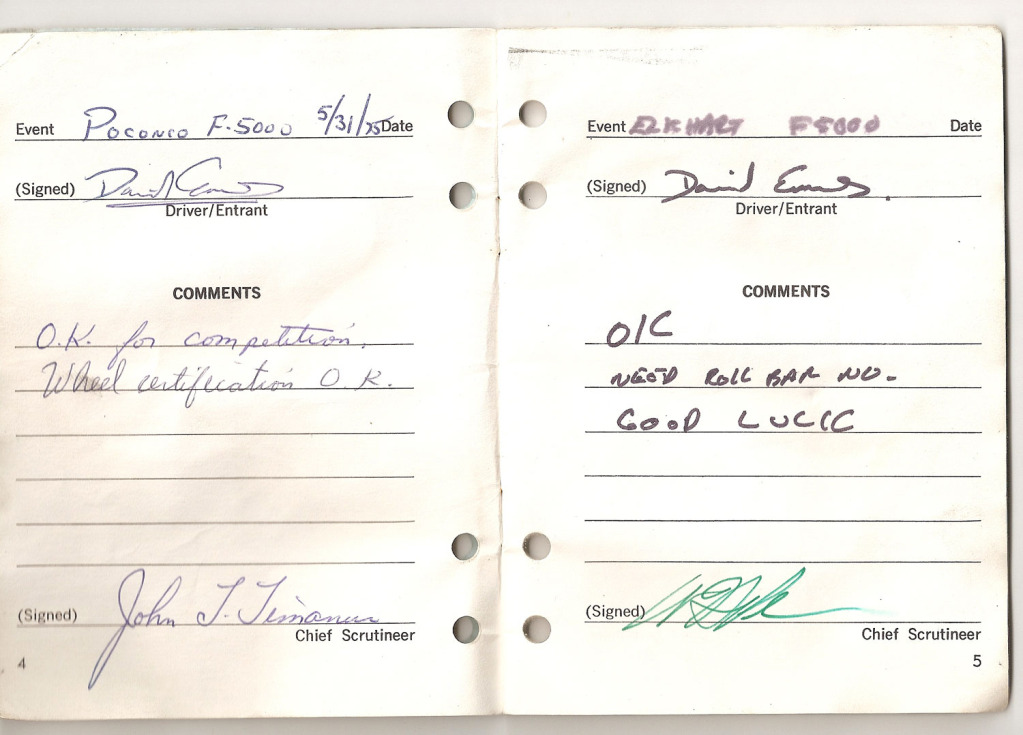 Event POCONO F-5000 5/31/75 Date
(Signed) David
Driver/Entrant
COMMENTS
O.K. for competition.
Wheel certification O.K.
(Signed) John T. Timanus
Chief Scrutineer
4
Event ELKHART F5000 Date
(Signed) David
Driver/Entrant
COMMENTS
O/C
NEED ROLL BAR NO.
GOOD LUCK
(Signed)
Chief Scrutineer
5